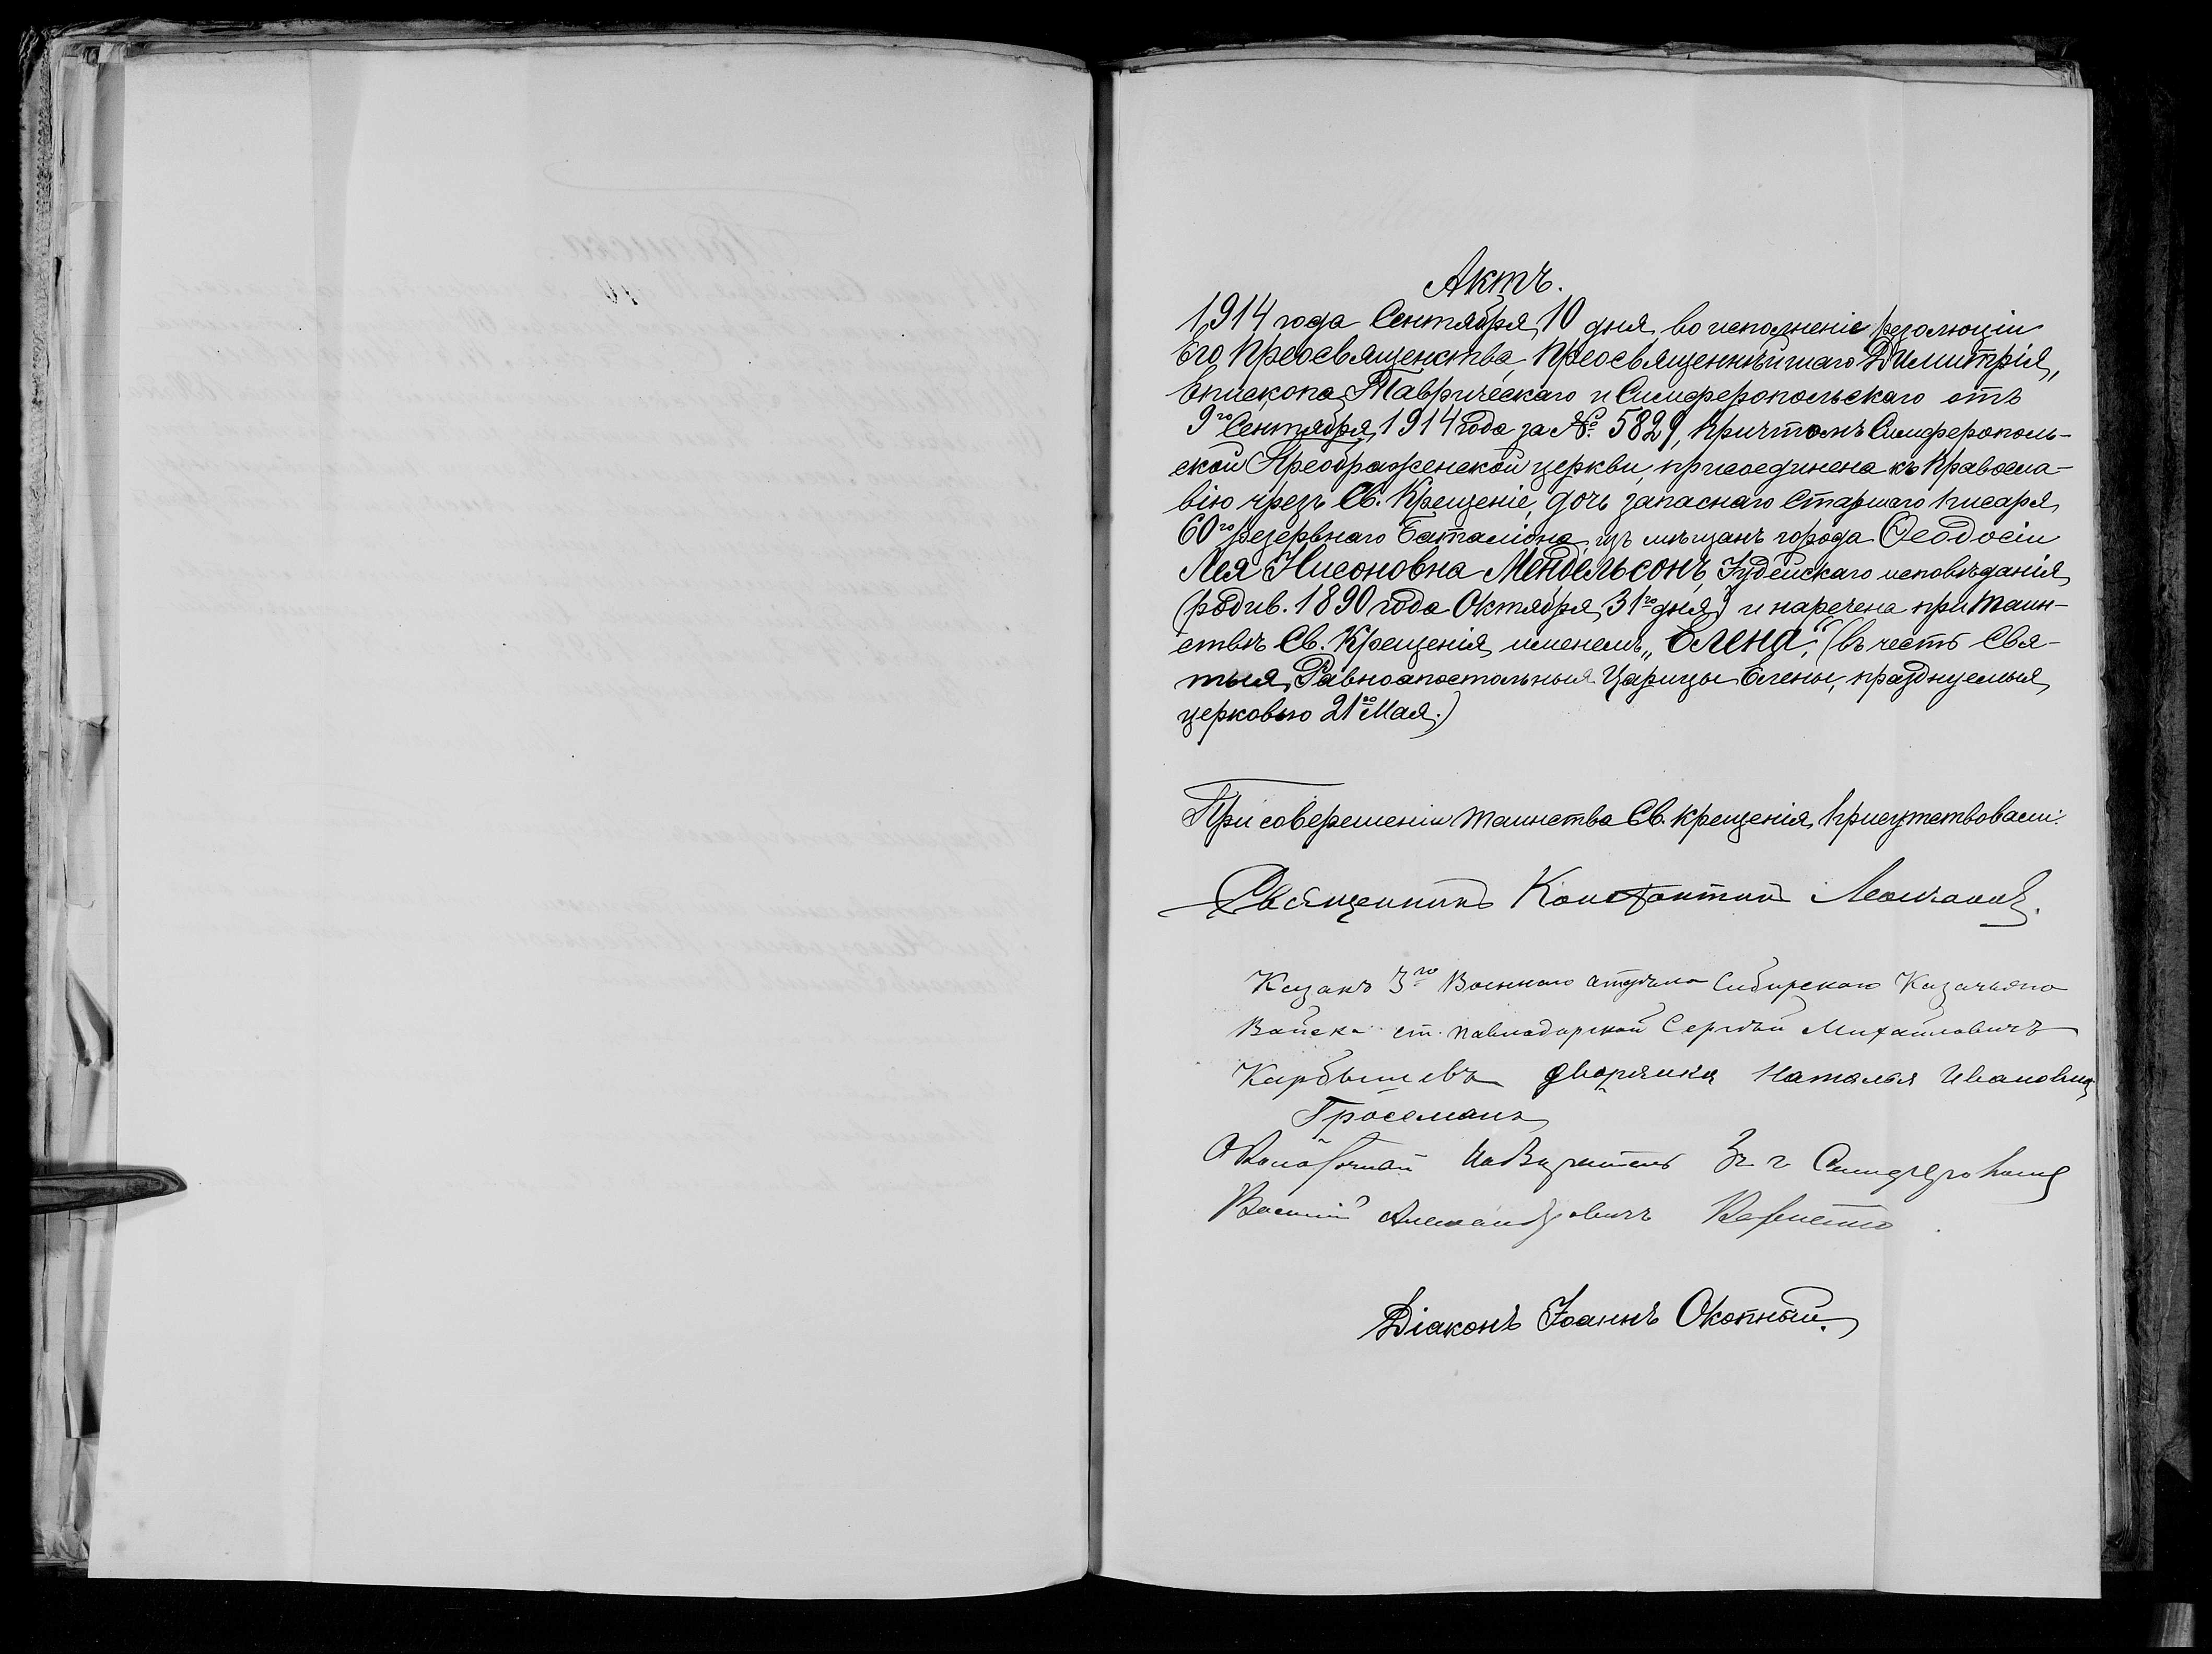 Актъ.
1914 года Сентября 10 дня, во исполненіе резолюціи
Его Преосвященства, Преосвященнѣйшаго Димитрія,
Епископа Таврическаго и Симферопольскаго отъ
9го Сентября 1914 года за № 5829, причтомъ Симферополь-
ской Преображенской церкви, присоединена къ Правосла-
вію чрезъ Св. Крещеніе, дочь запаснаго старшаго писаря
60го резервнаго баталіона, изъ мѣщанъ города Ѳеодосіи
Лея Нисоновна Мендельсонъ, Іудейскаго исповѣданія,
(родив. 1890 года Октября 31го дня) и наречена при таин-
ствѣ Св. Крещенія, именемъ „Елена“, (въ честь Свя-
тыя, Равноапостольныя Царицы Елены, празднуемыя,
церковью 21го Мая.)
При совершеніи таинства Св. Крещенія, присутствовали:
Священникъ Константинъ
Казакъ 3го Военнаго отдѣла Сибирскаго Казачьяго
Войска ст. Павлодарской Сергѣй Михайловичъ
Карбышевъ дворянка Наталья Ивановна
Гросманъ
Околоточный Надзиратель г Симферополя
Василій Александровичъ
Діаконъ Іоаннъ Окопный.